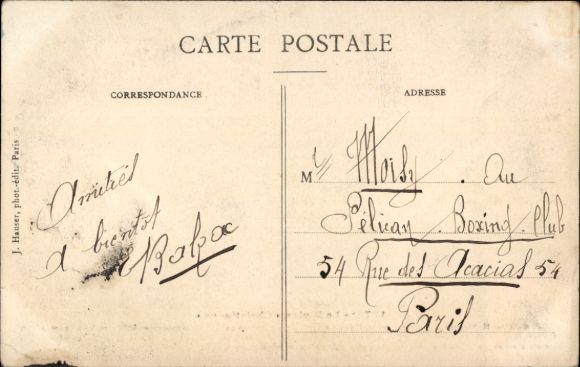 CARTE POSTALE
CORRESPONDANCE
ADRESSE
J. Hauser, phot.-édit. Paris
Amitiés
a bientot
M Moisy. Au
Pélican Boxing Club
54 Rue des Acacias 54
Paris